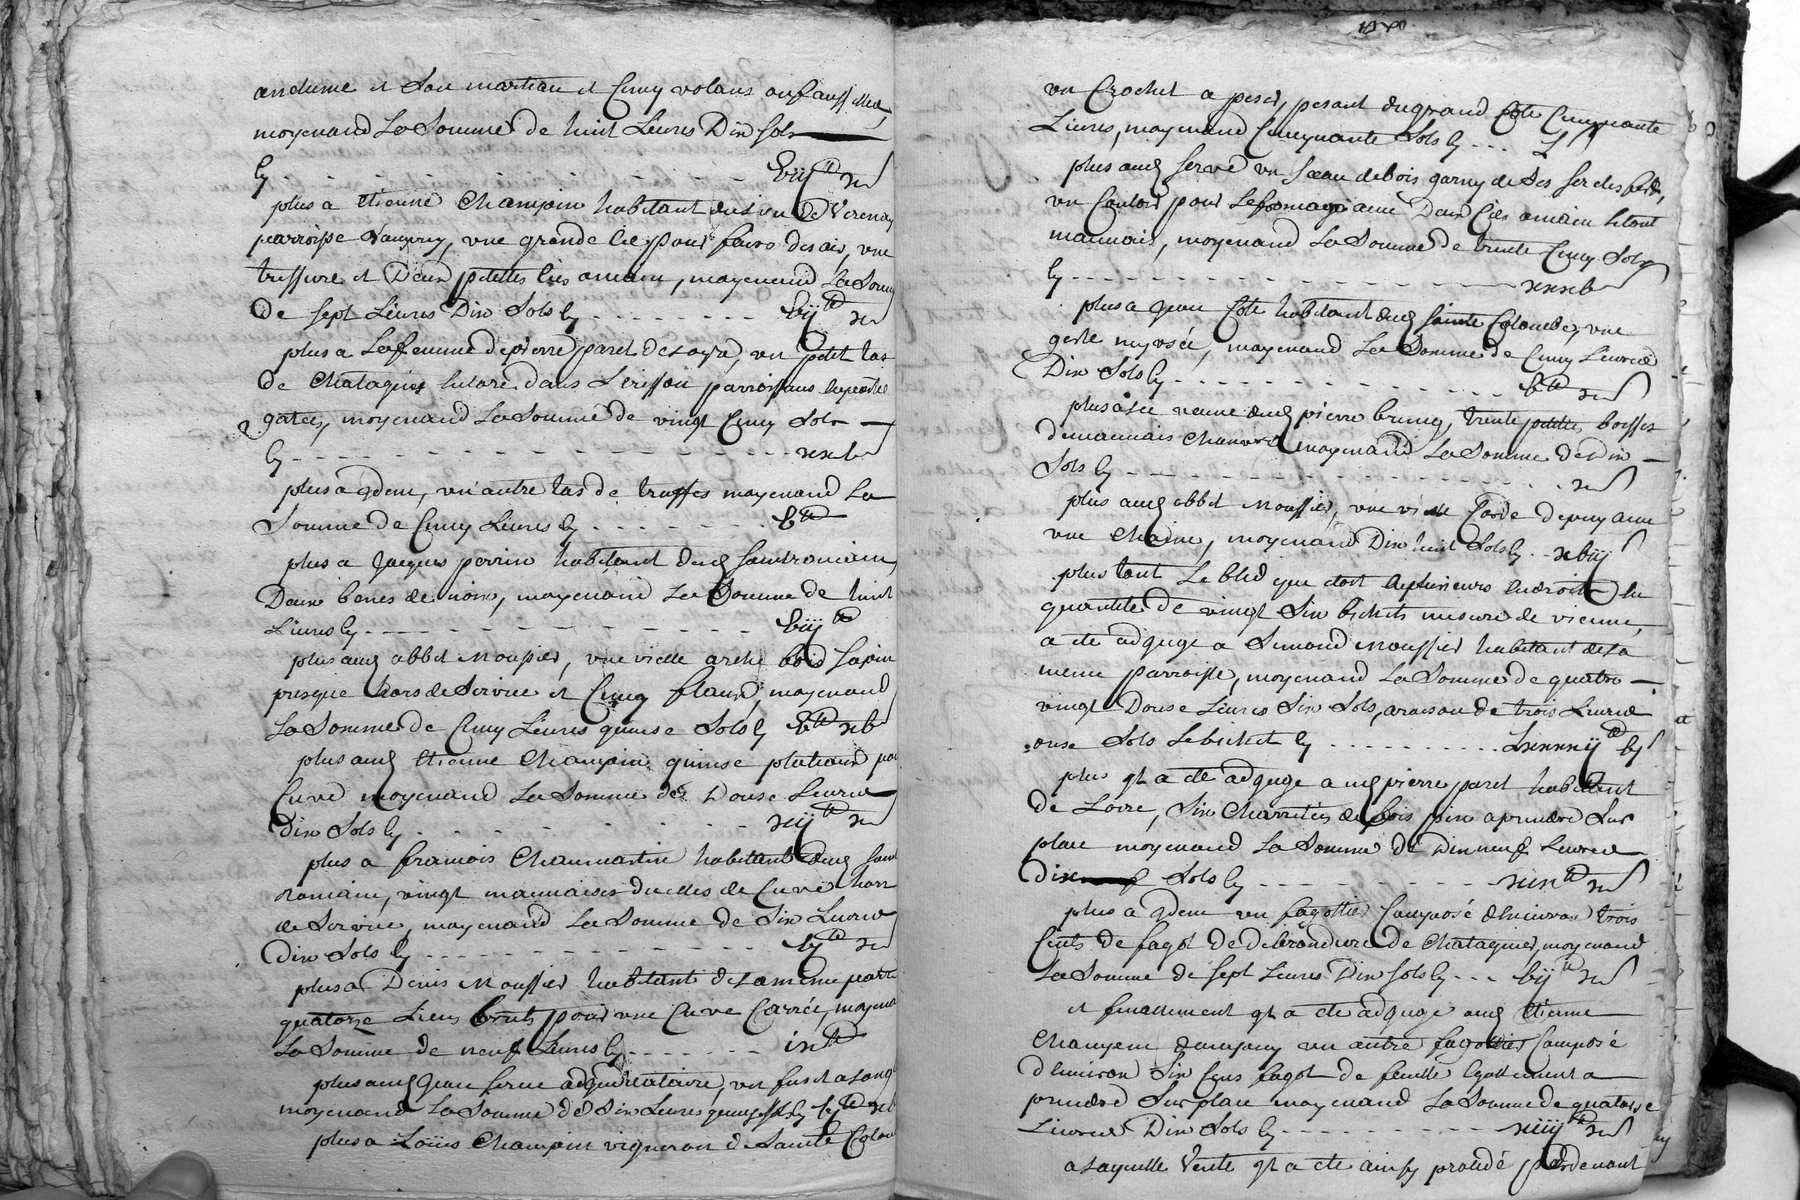 enclume et son marteau et cinq volans ou faussilles,
moyenand la somme de huit livres dix sols
cy viij ₶ x s
plus a etienne champin habitant du lieu de verenay
parroisse d'ampuy, une grande cie pour faire des ais, une
et deux petittes cies a main, moyenand la som
de sept livres dix sols cy vij ₶ x s
plus a la femme de pierre paret de un petit tas
de chataignes encore dans l'erisson
gatees, moyenand la somme de vingt cinq sols
cy xxv s
plus a idem, un autre tas de truffes moyenand la
somme de cinq livres cy v ₶
plus a jacques perrin habitant dud saint romain,
deux benes de moyenand la somme de huit
livres cy viij ₶
plus aud abbel moussier, une vielle arche bois sapin
presque hors de service et cinq moyenand
la somme de cinq livres quinse sols cy v ₶ xv
plus aud etienne champin quinse plateaux pou
cuve moyenand la somme de douse livres
dix sols cy xij ₶ x s
plus a francois chaumartin habitant dud saint
romain, vingt mauvaises duelles de cuves hors
de service, moyenand la somme de six livres
dix sols cy vj ₶ x s
plus a denis moussier habitant de la meme parr
quatorze liens bruts pour une cuve carrée, moyena
la somme de neuf livres cy ix ₶
plus aud jean un fusil a
moyenand la somme de six livres quinse sols cy vj ₶ xv
plus a Loüis champin vigneron de sainte colom
un crochet a peser, pesant du grand cote cinquante
livres, moyenand cinquante sols cy L s
plus aud serve un seau de bois garny de ses cercles fer,
un couloir pour le fromage avec deux cies a main le tout
mauvais, moyenand la somme de trente cinq sols
cy xxxv s
plus a jean cote habitant dud sainte colombe, une
moyenand la somme de cinq livres
dix sols cy v ₶ x s
plus a la veuve dud pierre trente petittes
de mauvais chanvre moyenand la somme de dix
sols cy x s
plus aud abbel moussier, une vielle corde de puy avec
une chaine, moyenand dix huit sols cy xviij s
plus tout le bled que doit en la
quantité de vingt six bichets mesure de vienne,
a ete adjugé a simond moussier habitant de la
meme parroisse, moyenand la somme de quatre
vingt douse livres six sols, a raison de trois livres
onse sols le bichet cy Lxxxxij ₶ vj s
plus il a ete adjugé a ud pierre paret habitant
de Loire, six charretées de bois pin a prendre sur
place moyenand la somme de dix neuf livres
dix sols cy xix ₶ x s
plus a idem un fagottier composé d'environ trois
cents de fagot de de chataigner, moyenand
la somme de sept livres dix sols cy vij ₶ x s
et finallement il a ete adjugé aud etienne
champin d'ampuy un autre fagottier composé
d'environ six cens fagot de feuille egallement a
prendre sur place moyenand la somme de quatorze
livres dix sols cy xiiij ₶ x s
a laquelle vente il a ete ainsy procedé pardevant